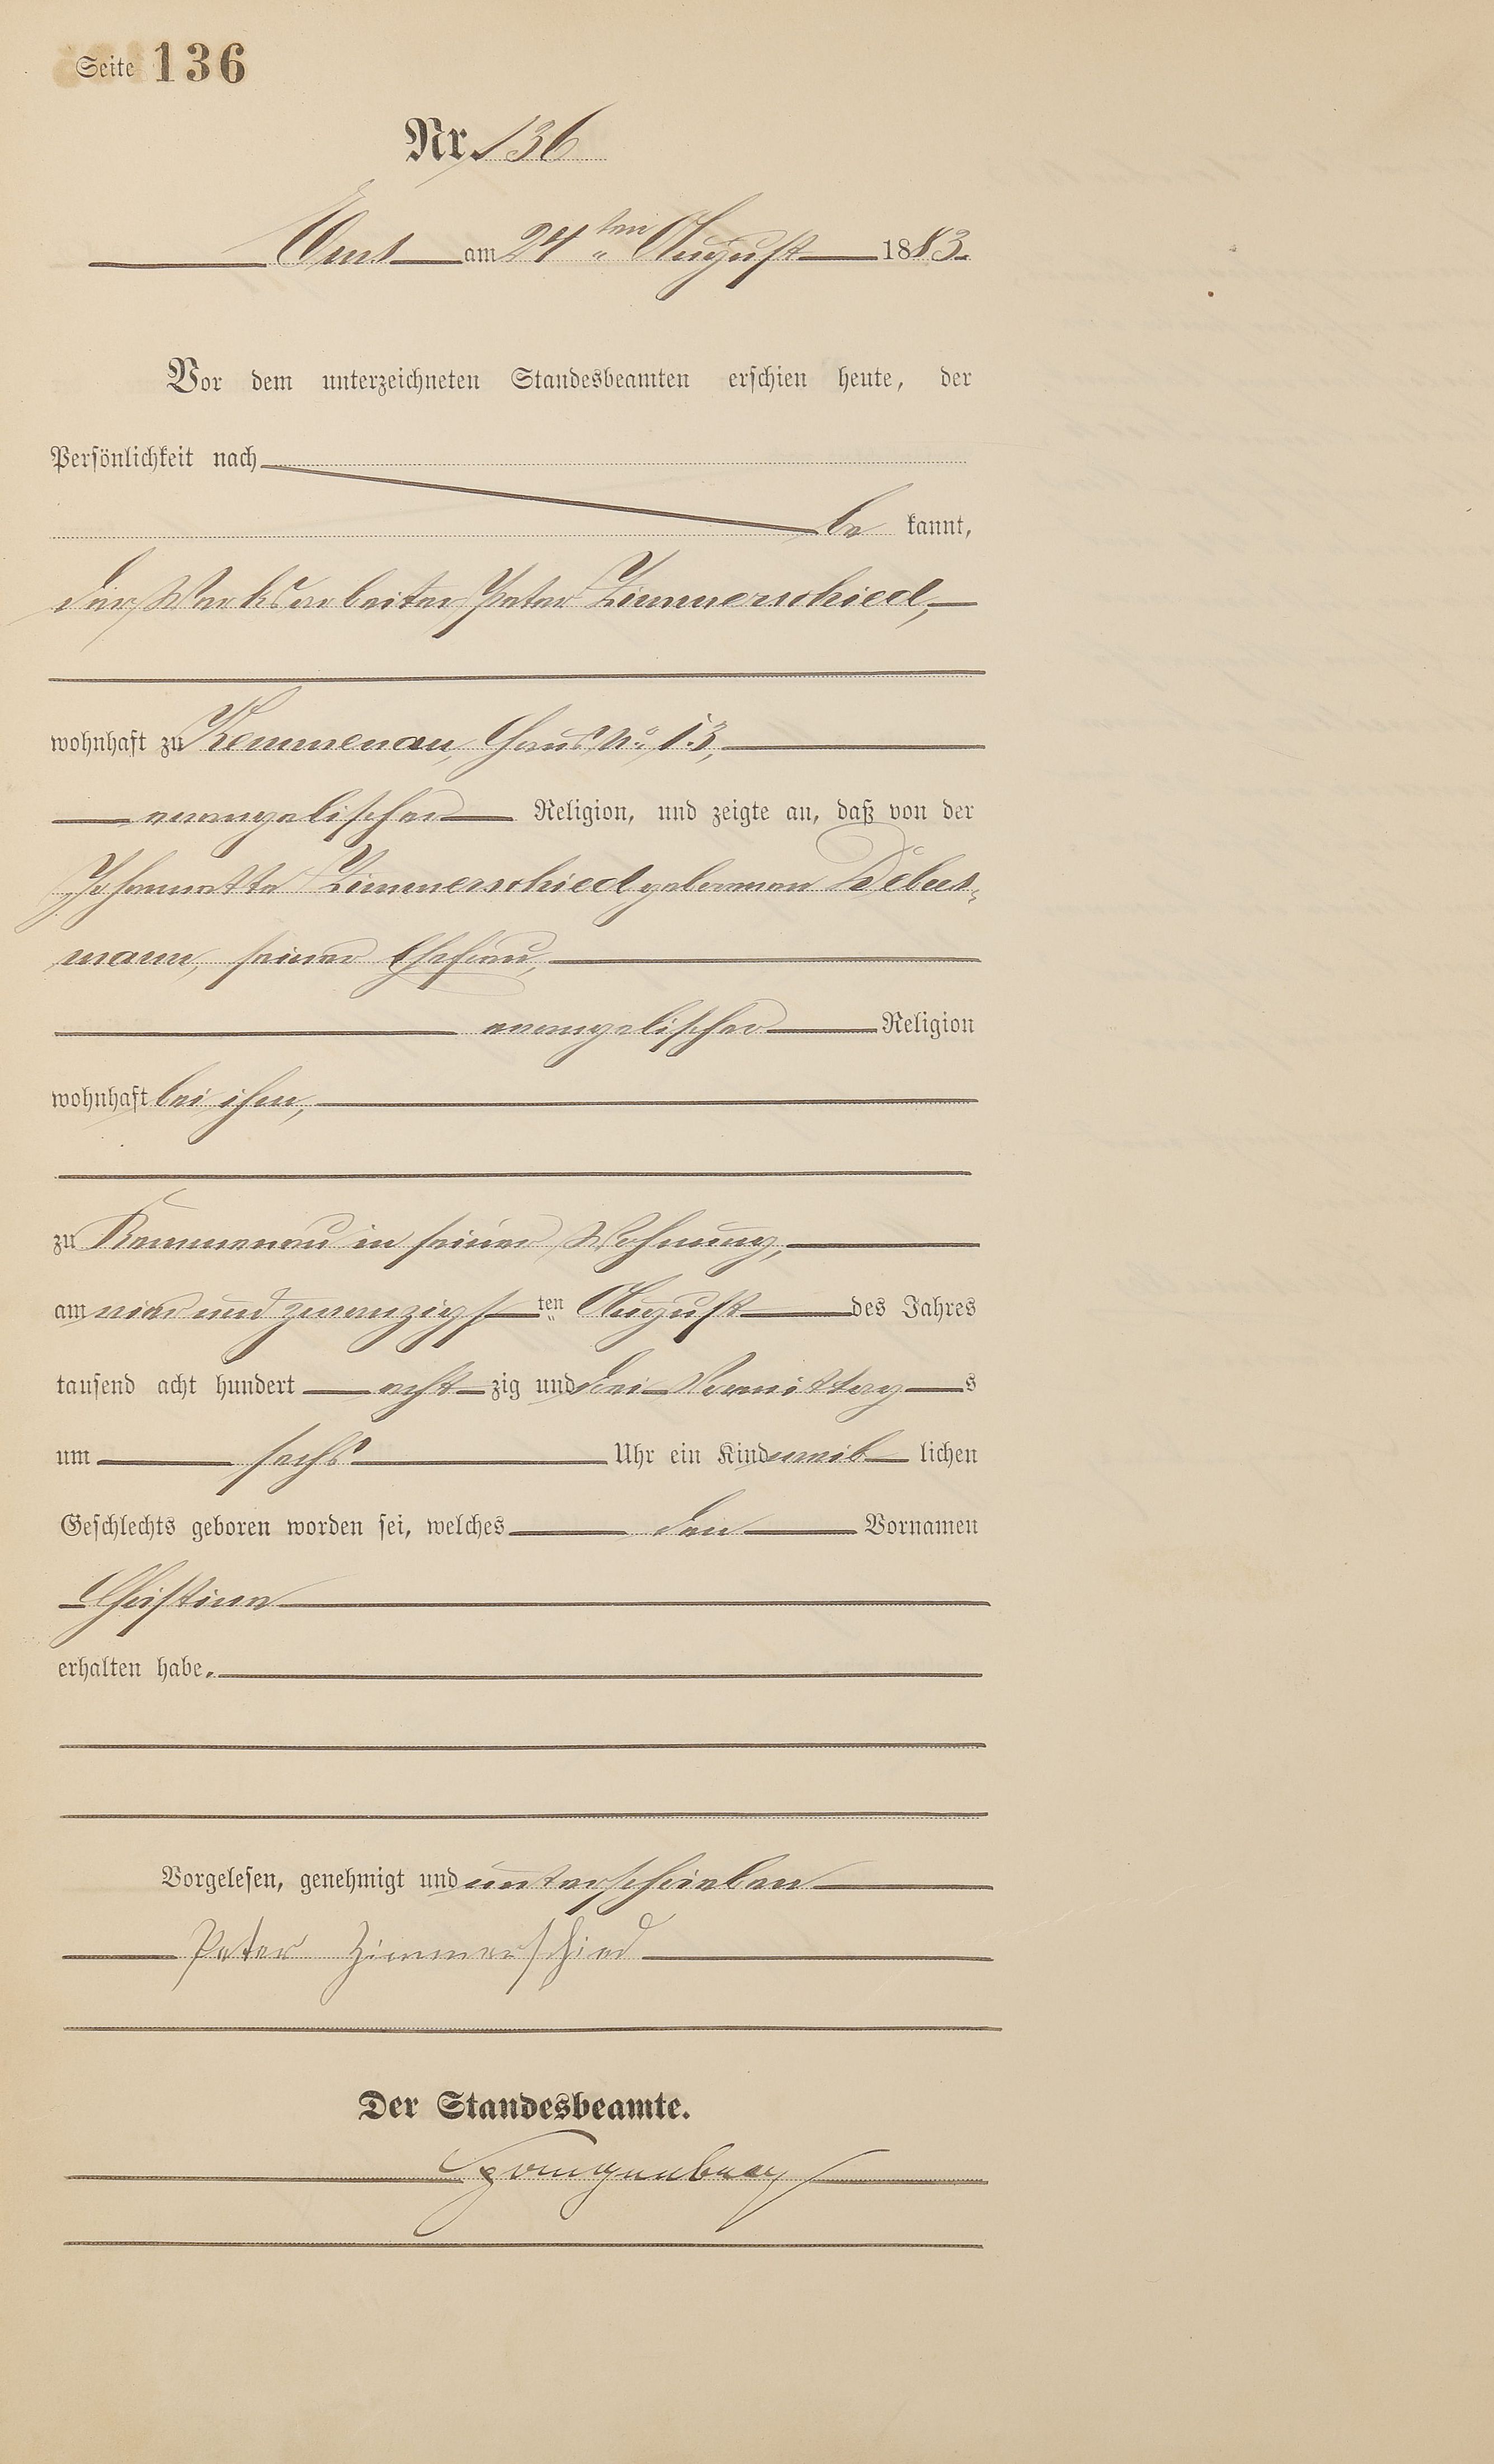 Seite 136
Nr. 136
Ems am 24ten August 1883.
Vor dem unterzeichneten Standesbeamten erschien heute, der
Persönlichkeit nach
be kannt,
der Werksarbeiter Peter Zimmerschied,
wohnhaft zu Kemmenau, Haus No 13,
evangelischer Religion, und zeigte an, daß von der
Johannette Zimmerschied geborenen Debus-
mann, seiner Ehefrau,
evangelischer Religion
wohnhaft bei ihm,
zu Kemmenau in seiner Wohnung,
am vier und zwanzigsten August des Jahres
tausend acht hundert acht zig und drei Vormittag s
um sechs Uhr ein Kind weib lichen
Geschlechts geboren worden sei, welches den Vornamen
Christine
erhalten habe.
Vorgelesen, genehmigt und unterschrieben
Peter Zimmerschied
Der Standesbeamte.